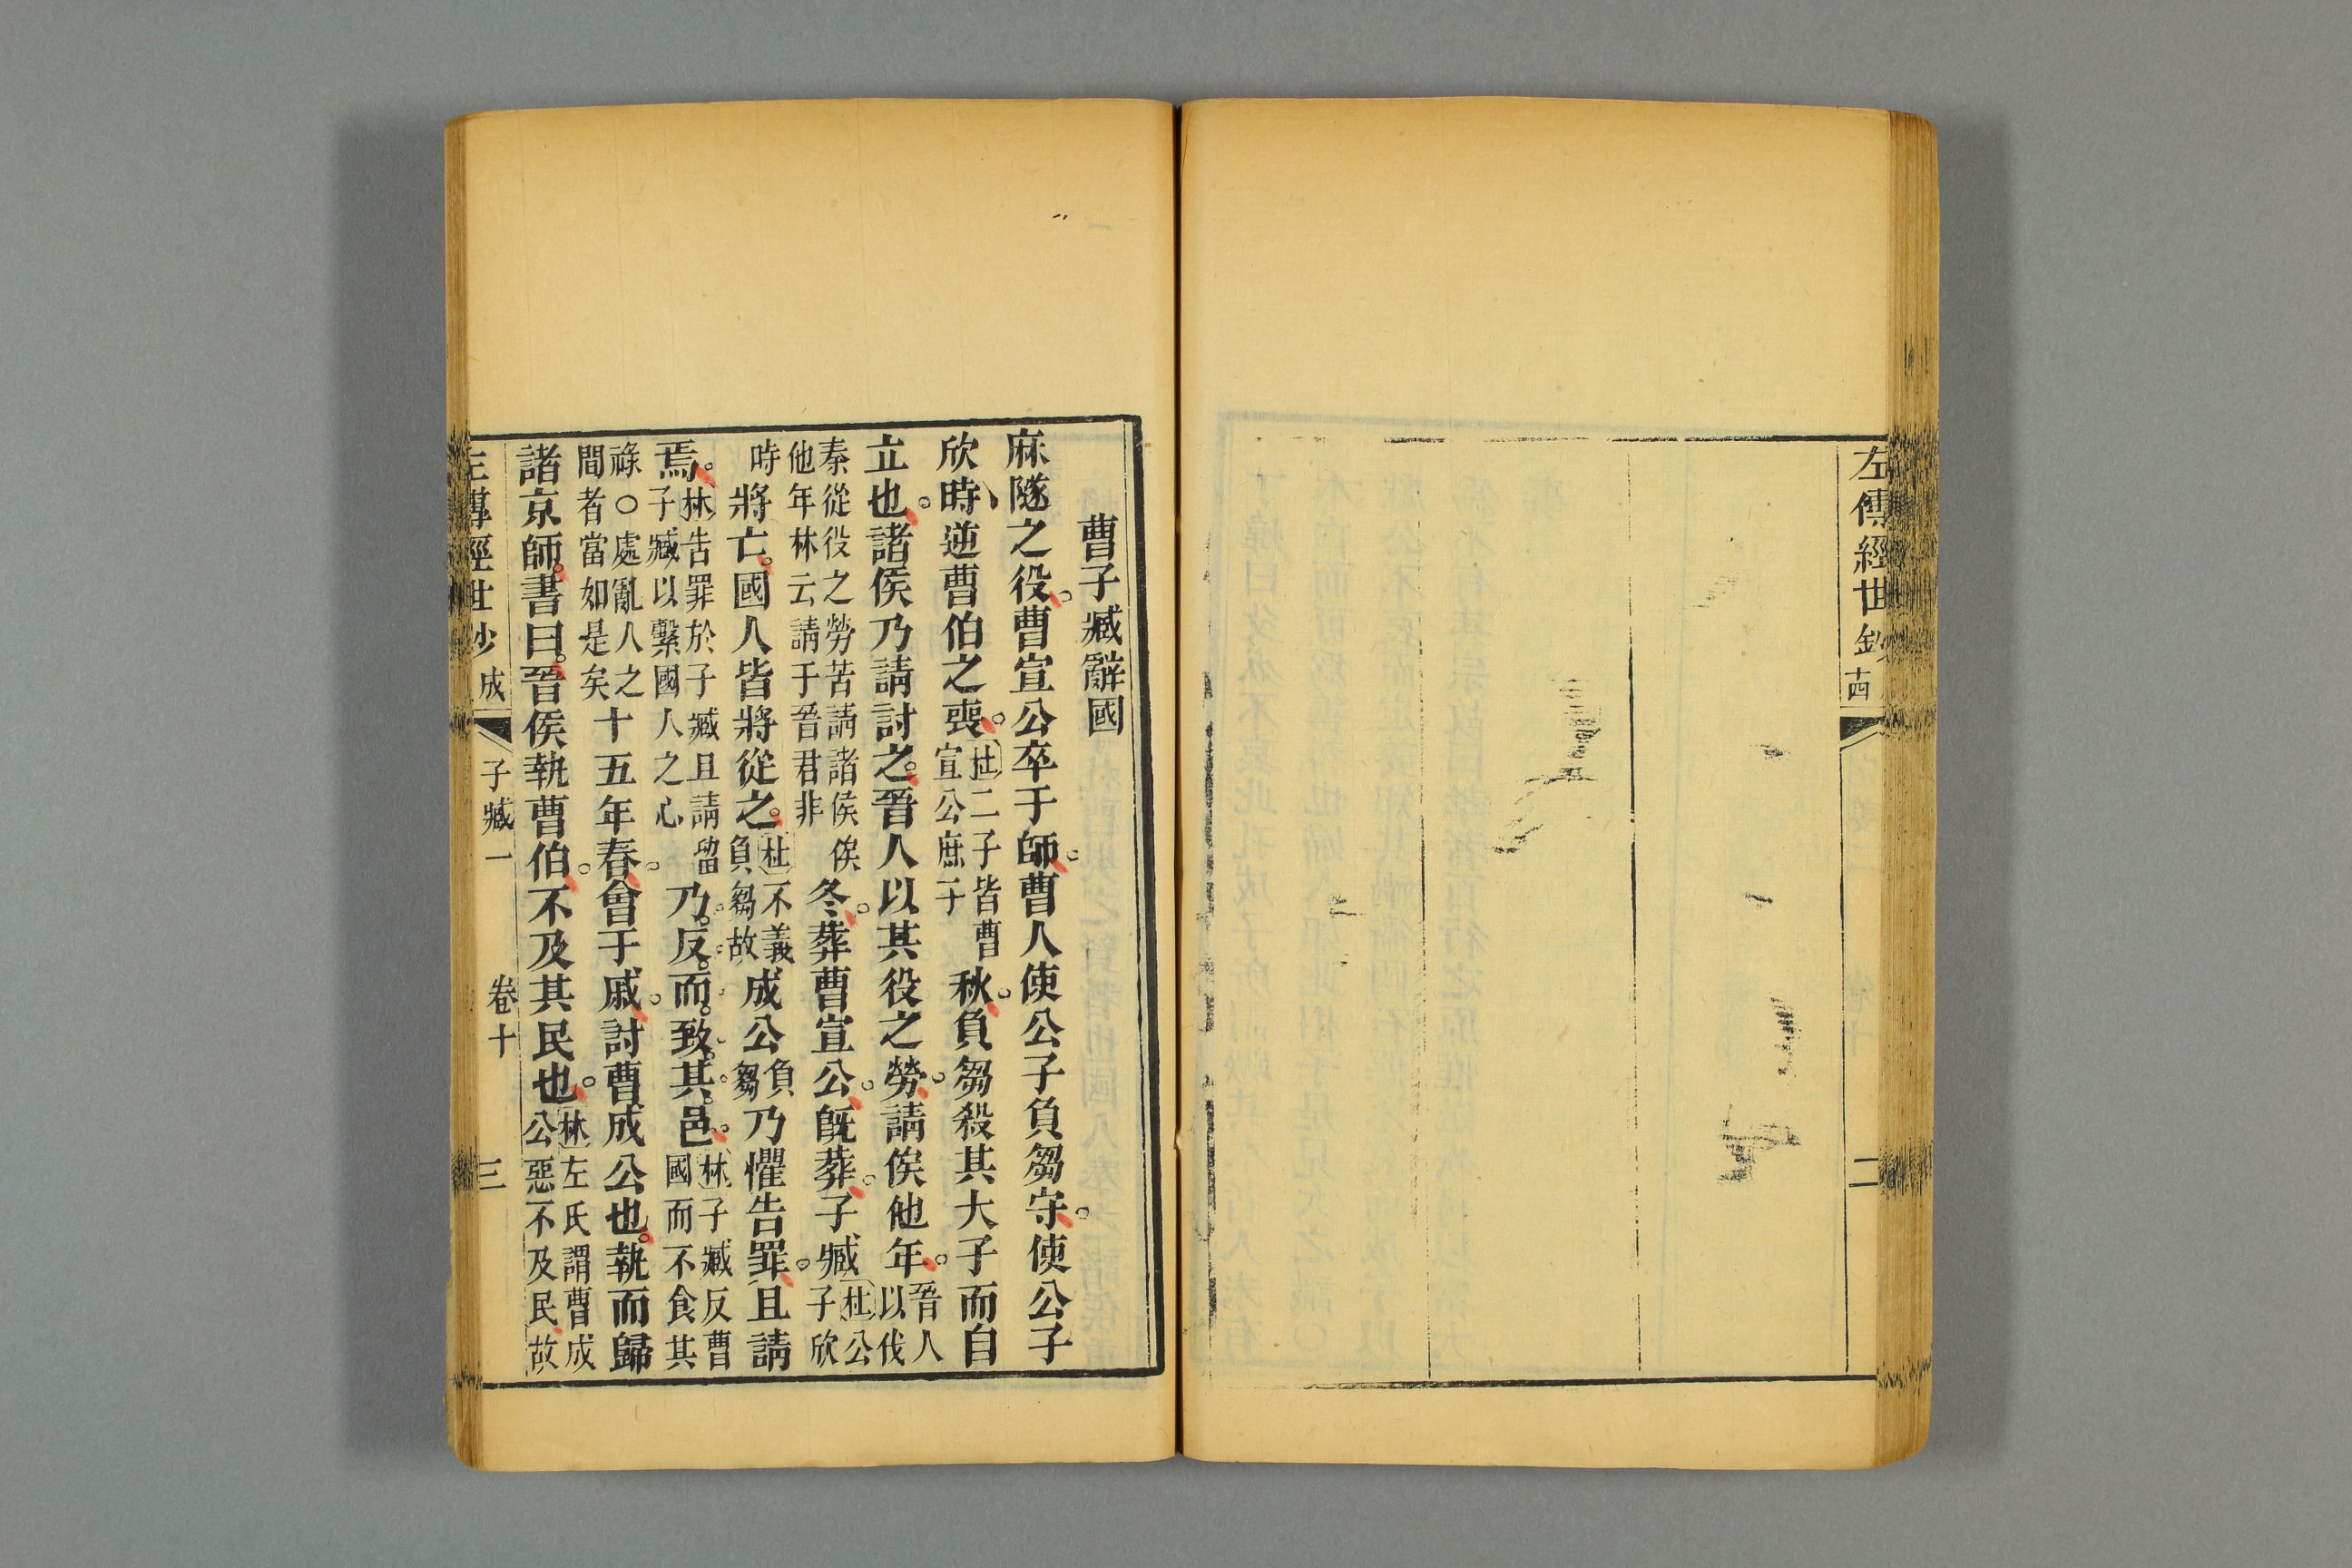 左傳經世鈔
二
曹子臧辭國
麻隧之役曹宣公卒于師曹人使公子負芻守使公子
欣時逆曹伯之喪杜二子皆曹宣公庶子秋負芻殺其大子而自
立也諸侯乃請討之晉人以其役之勞請俟他年晉人以伐
秦從役之勞苦請諸侯俟他年林云請于晉君非冬葬曹宣公既葬子臧杜公子欣
時將亡國人皆將從之杜不義負芻故成公負芻乃懼告罪且請
焉林告罪於子臧且請留子臧以繫國人之心乃反而致其邑林子臧反曹國而不食其
祿○處亂人之間者當如是矣十五年春會于戚討曹成公也執而歸
諸京師書曰晉侯執曹伯不及其民也林左氏謂曹成公惡不及民故
左傳經世鈔 成 子臧一 卷十 三